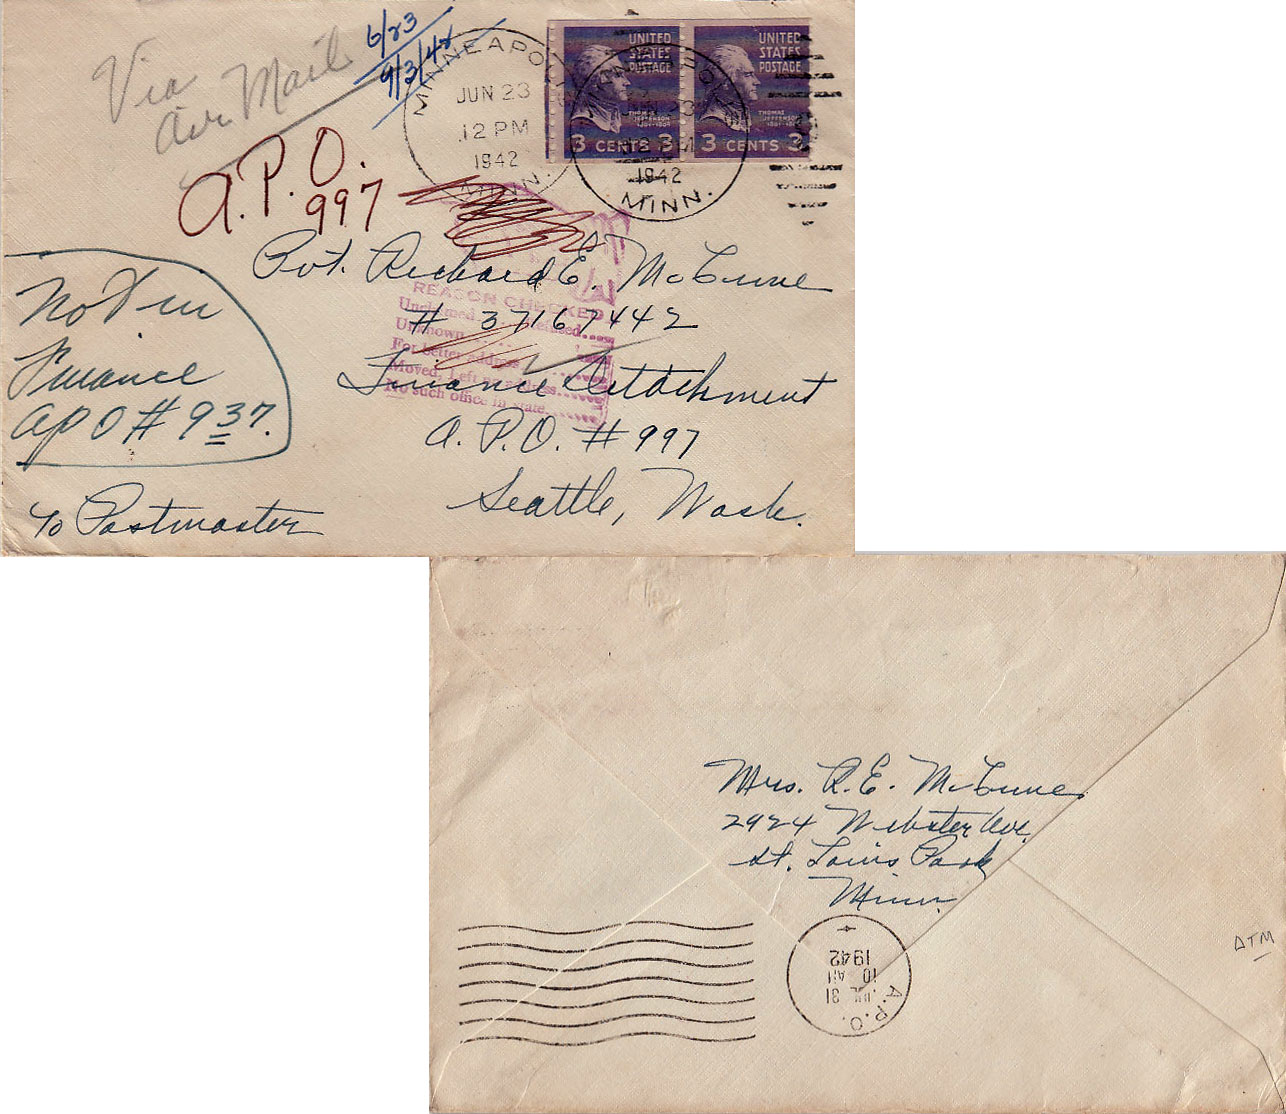 Via
Air Mail
6/23
9/3/42
MINNEAPOLIS
JUN 23
12 PM
1942
MINN.
UNITED
STATES
POSTAGE
THOMAS
JEFFERSON
1801-1809
3 CENTS 3
UNITED
STATES
POSTAGE
THOMAS
JEFFERSON
1801-1809
3 CENTS 3
MINNEAPOLIS
JUN 23
12 PM
1942
MINN.
A.P.O.
997
Pvt. Richard E. McCune
# 37167442
Finance Detachment
A.P.O. # 997
Seattle, Wash.
REASON CHECKED
Unclaimed Refused
Unknown
For better address
Moved, Left no address
No such office in state
Not in
Finance
APO # 937.
c/o Postmaster
Mrs. R.E. McCune
2924 Webster Ave.
St. Louis Park
Minn.
A.P.O.
JUL 31
10 AM
1942
ATM